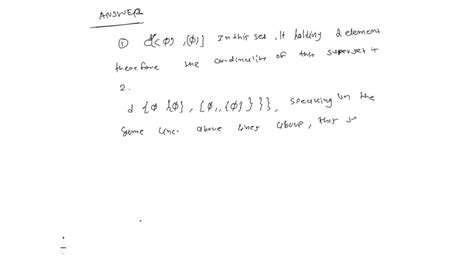 ANSWER
① {{∅}, {∅}] In this set, It holding 2 element
therefore the cardinality of this superset is
2.
d {∅ {∅}, {∅,, {∅} } } }, speaking on the
same line above lines above, this